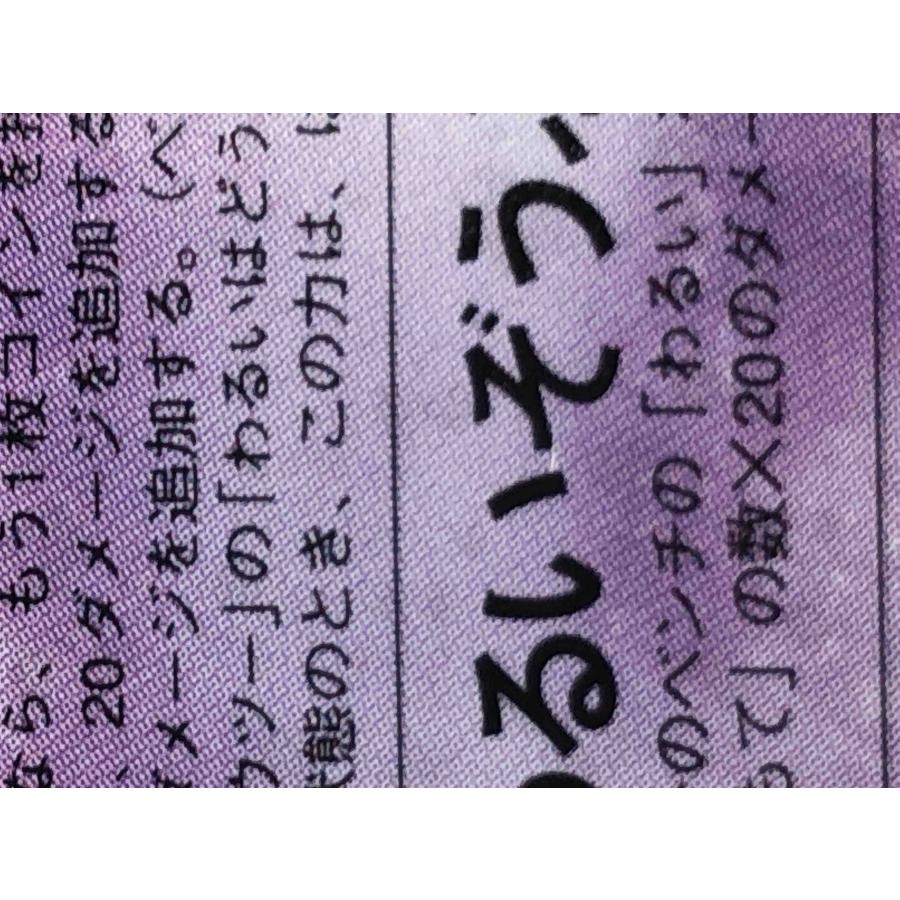 なら、もう1枚コインを
、20ダメージを追加する
ダメージを追加する。(べ
ウツー」の「わるいはどう
状態のとき、この力は、に
るいぞう
のベンチの「わるい」
て」の数×20のダメー